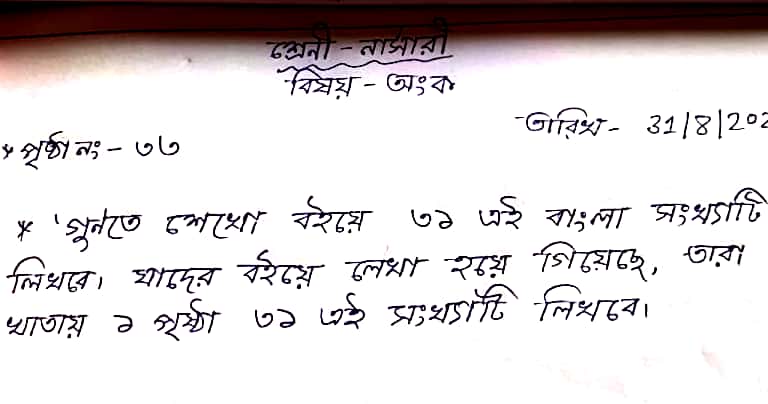 শ্রেনী - নার্সারী
বিষয় - অংক
তারিখ - 31/8/202
* পৃষ্ঠা নং - ৩৬
* 'গুনতে শেখো বইয়ে ৩১ এই বাংলা সংখ্যাটি
লিখবে। যাদের বইয়ে লেখা হয়ে গিয়েছে, তারা
খাতায় ১ পৃষ্ঠা ৩১ এই সংখ্যাটি লিখবে।